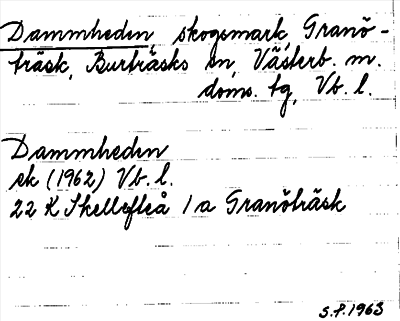 Dammheden, skogsmark, Granö-
träsk, Burträsks sn, Västerb. m.
doms. tg, Vb. l.
Dammheden
ek (1962) Vb. l.
22 K Skellefteå 1 a Granöträsk
S.P. 1963